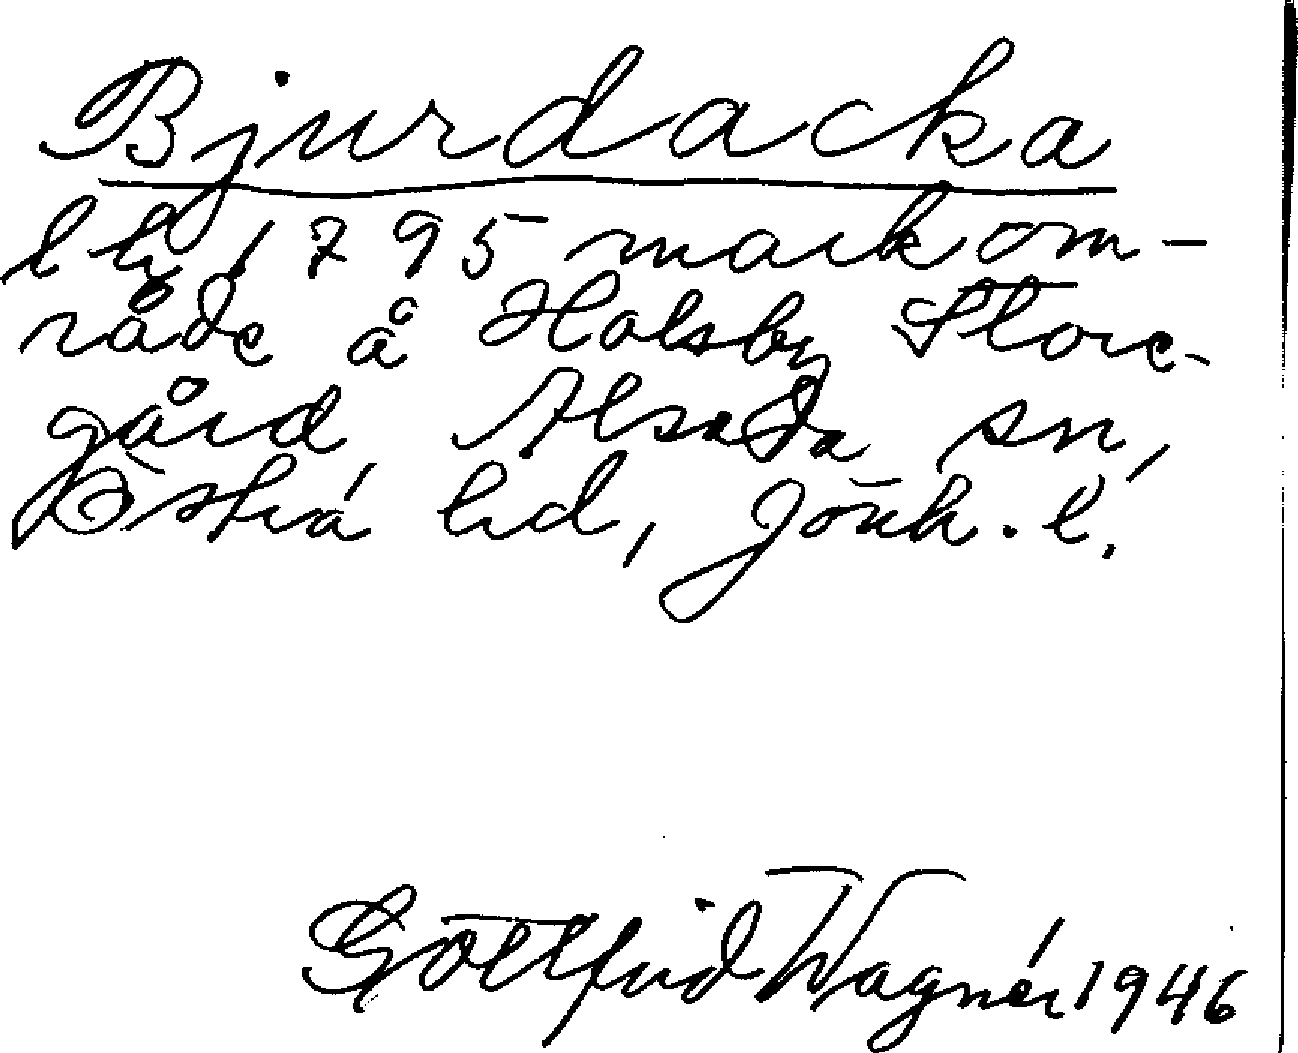 Bjurdacka
lhj 1795 markom-
råde å Holsby Store-
gård Alseda sn,
Östra hd, Jönk. l.
Gottfrid Wagnér 1946